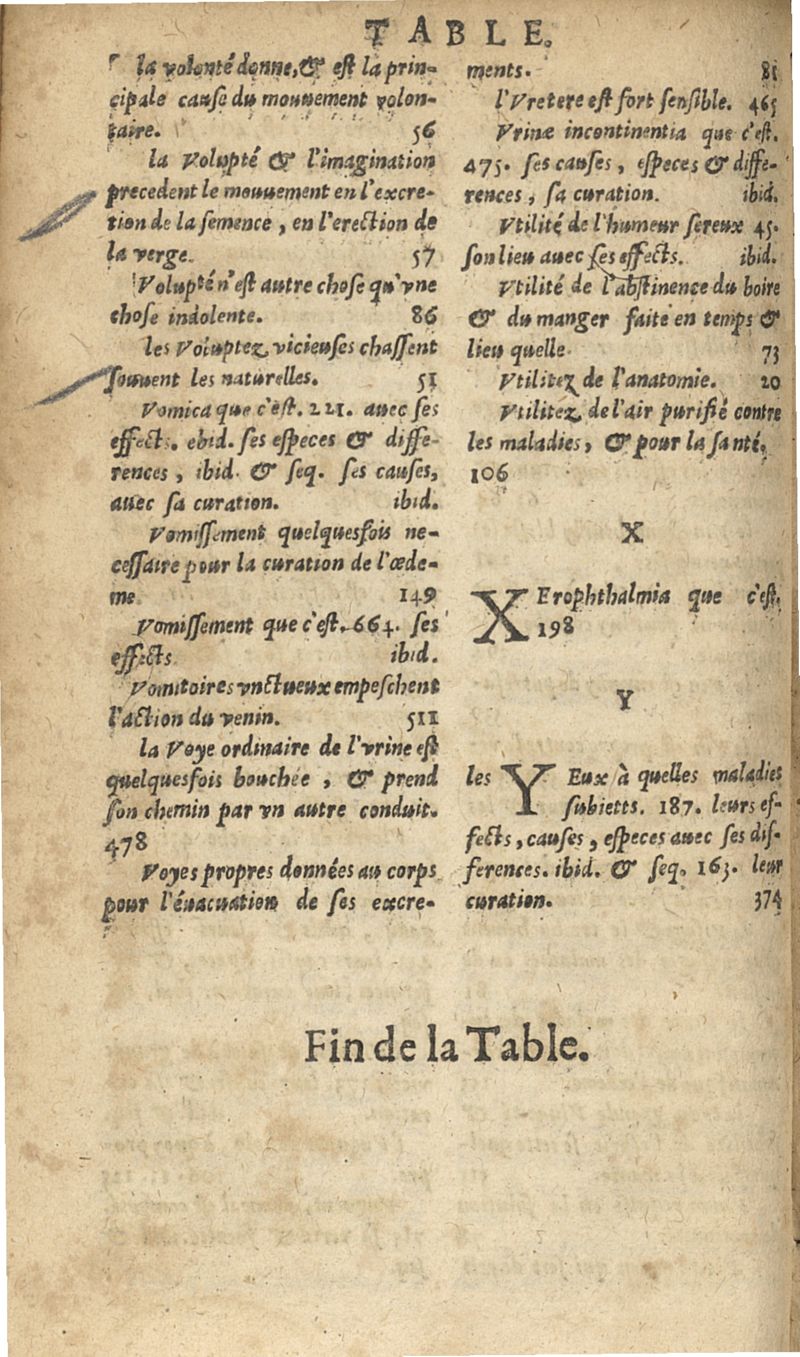 TABLE.
la volonté donne, & est la prin-
cipale cause du mouuement volon-
taire. 56
la Volupté & l'imagination
precedent le mouuement en l'excre-
tion de la semence, en l'erection de
la verge. 57
Volupté n'est autre chose qu'vne
chose indolente. 86
les Voluptez vicieuses chassent
souuent les naturelles. 51
Vomica que c'est. 221. auec ses
effects. ebid. ses especes & diffe-
rences, ibid. & seq. ses causes,
auec sa curation. ibid.
Vomissement quelquesfois ne-
cessaire pour la curation de l'œde-
me 149
Vomissement que c'est. 664. ses
effects ibid.
Vomitoires vnctueux empeschent
l'action du venin. 511
la Voye ordinaire de l'vrine est
quelquesfois bouchée, & prend
son chemin par vn autre conduit.
478
Voyes propres données au corps
pour l'éuacuation de ses excre-
ments. 81
l'Vretere est fort sensible. 465
Vrinæ incontinentia que c'est.
475. ses causes, especes & diffe-
rences, sa curation. ibid.
Vtilité de l'humeur sereux 45.
son lieu auec ses effects. ibid.
Vtilité de l'abstinence du boire
& du manger faite en temps &
lieu quelle 73
Vtilitez de l'anatomie. 20
Vtilitez de l'air purifié contre
les maladies, & pour la santé.
106
X
XErophthalmia que c'est.
198
Y
les YEux à quelles maladies
subietts. 187. leurs ef-
fects, causes, especes auec ses dif-
ferences. ibid. & seq. 163. leur
curation. 374
Fin de la Table.